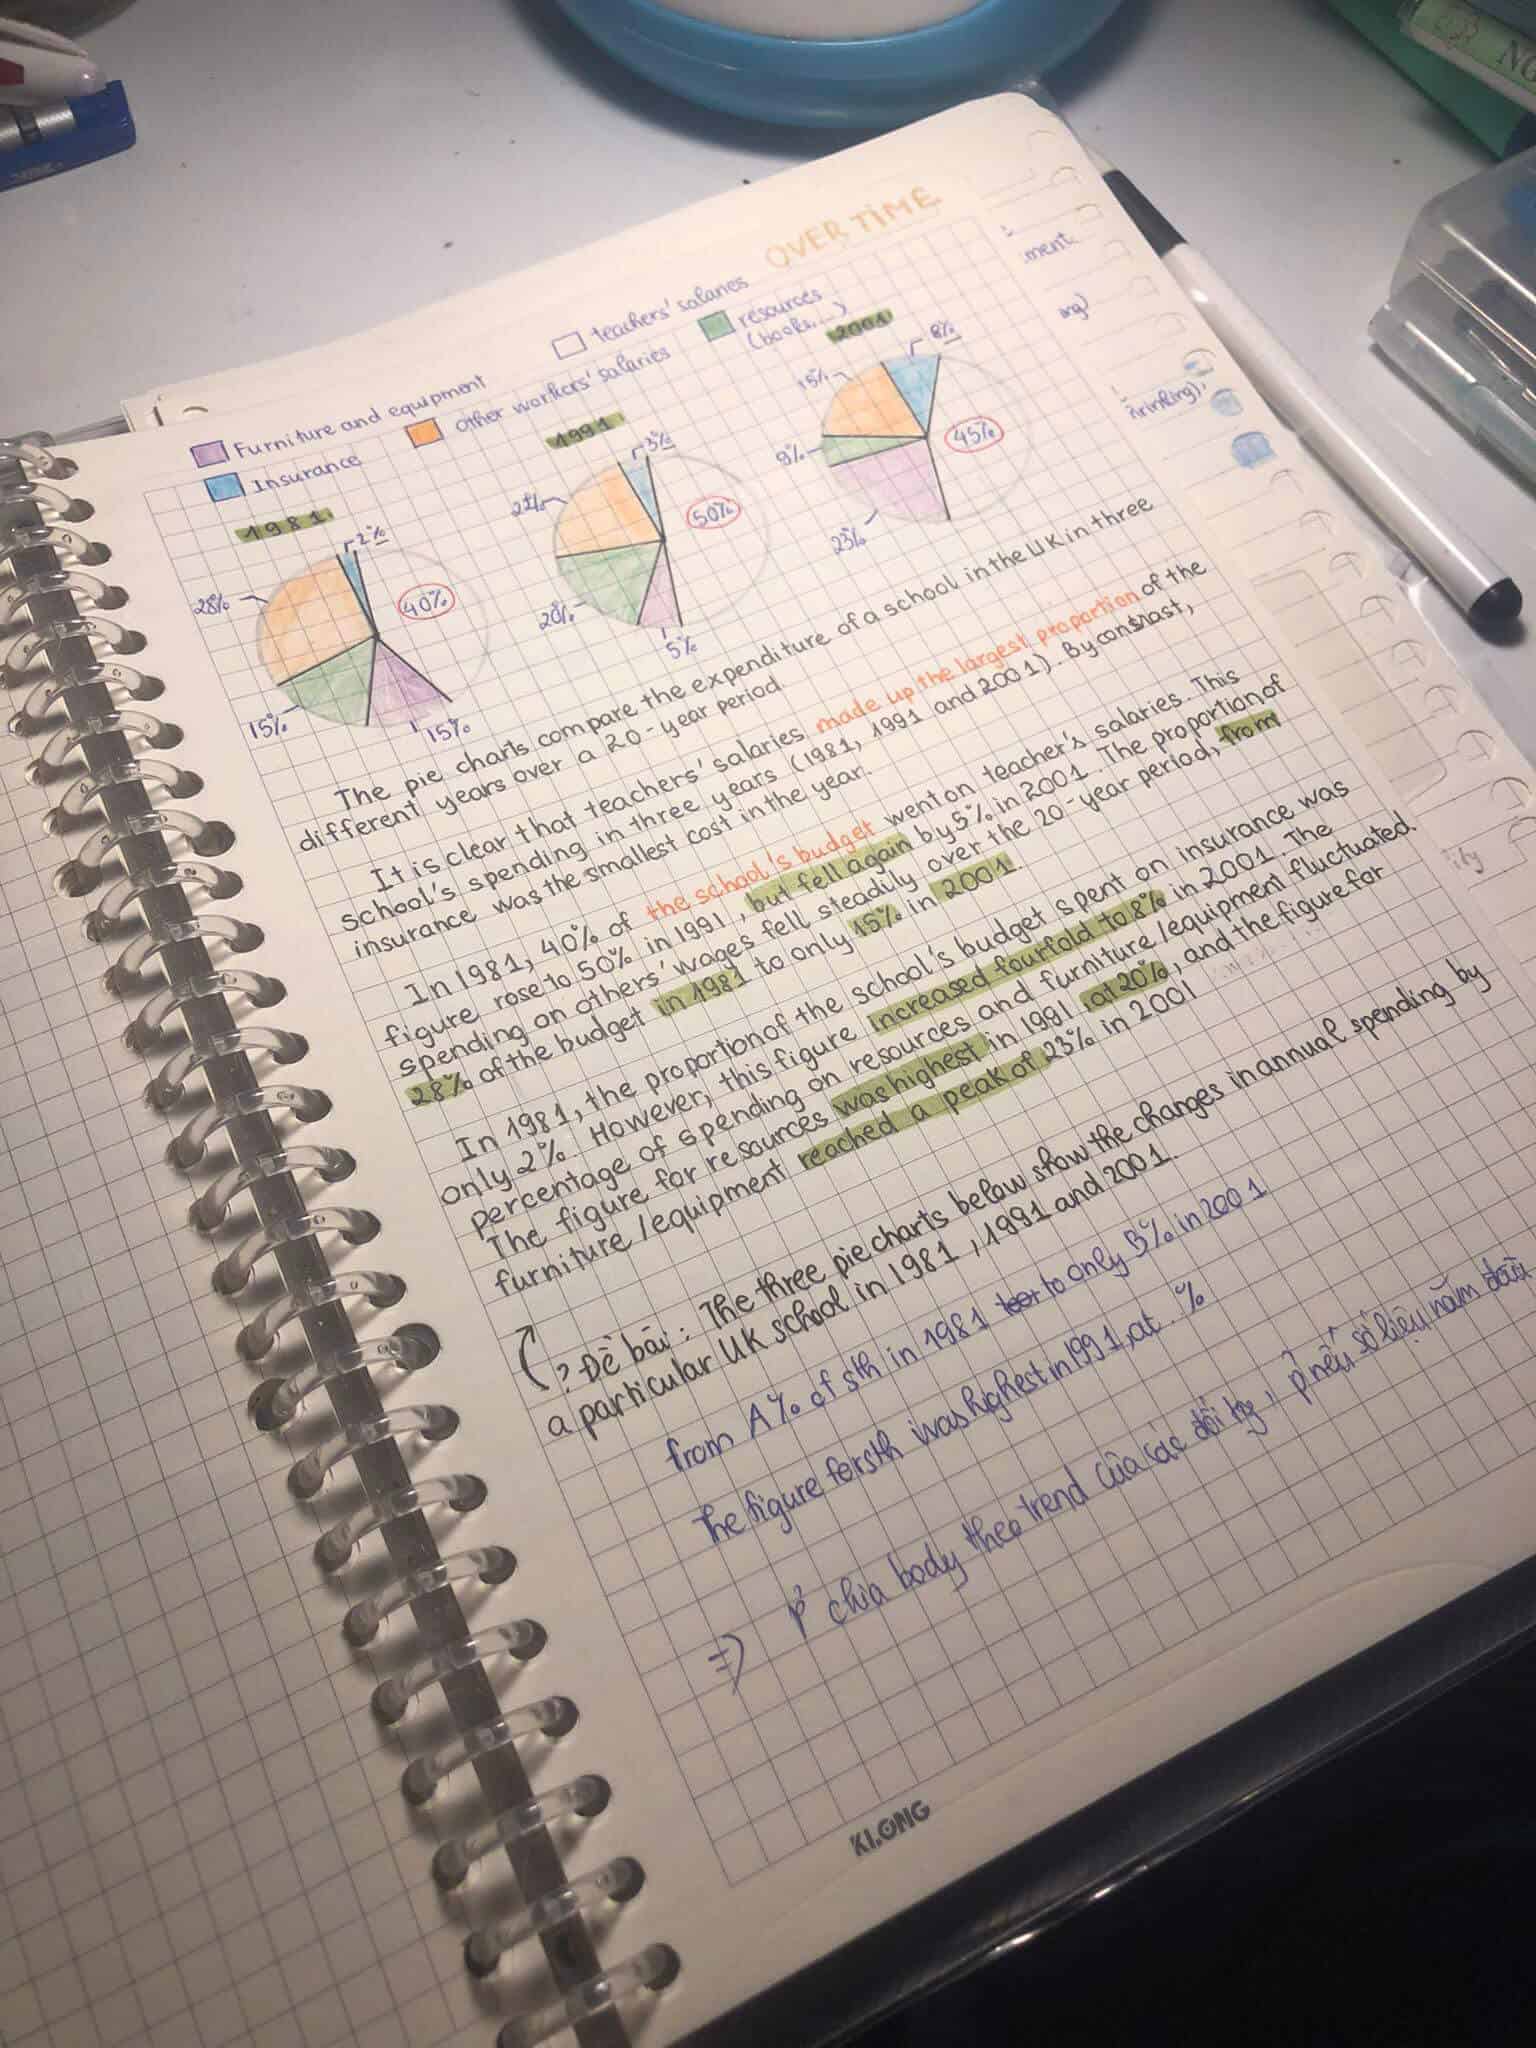 OVER TIME
Furniture and equipment
Other workers' salaries
teachers' salaries
resources
(books...)
Insurance
1981
2%
28%
40%
15%
15%
1991
3%
50%
20%
5%
2001
8%
15%
45%
9%
23%
The pie charts compare the expenditure of a school in the UK in three
different years over a 20-year period.
It is clear that teachers' salaries made up the largest proportion of the
school's spending in three years (1981, 1991 and 2001). By contrast,
insurance was the smallest cost in the year.
In 1981, 40% of the school's budget went on teacher's salaries. This
figure rose to 50% in 1991, but fell again by 5% in 2001. The proportion of
spending on others' wages fell steadily over the 20-year period, from
28% of the budget in 1981 to only 15% in 2001.
In 1981, the proportion of the school's budget spent on insurance was
only 2%. However, this figure increased fourfold to 8% in 2001. The
percentage of spending on resources and furniture/equipment fluctuated.
The figure for resources was highest in 1991, at 20%, and the figure for
furniture/equipment reached a peak of 23% in 2001
? Đề bài: The three pie charts below show the changes in annual spending by
a particular UK school in 1981, 1991 and 2001.
from A% of sth in 1981 to only B% in 2001
The figure for sth was highest in 1991, at .%
=) chia body theo trend của các đối tg, nếu số liệu năm đầu
KLONG
ment
ing)
drinking),